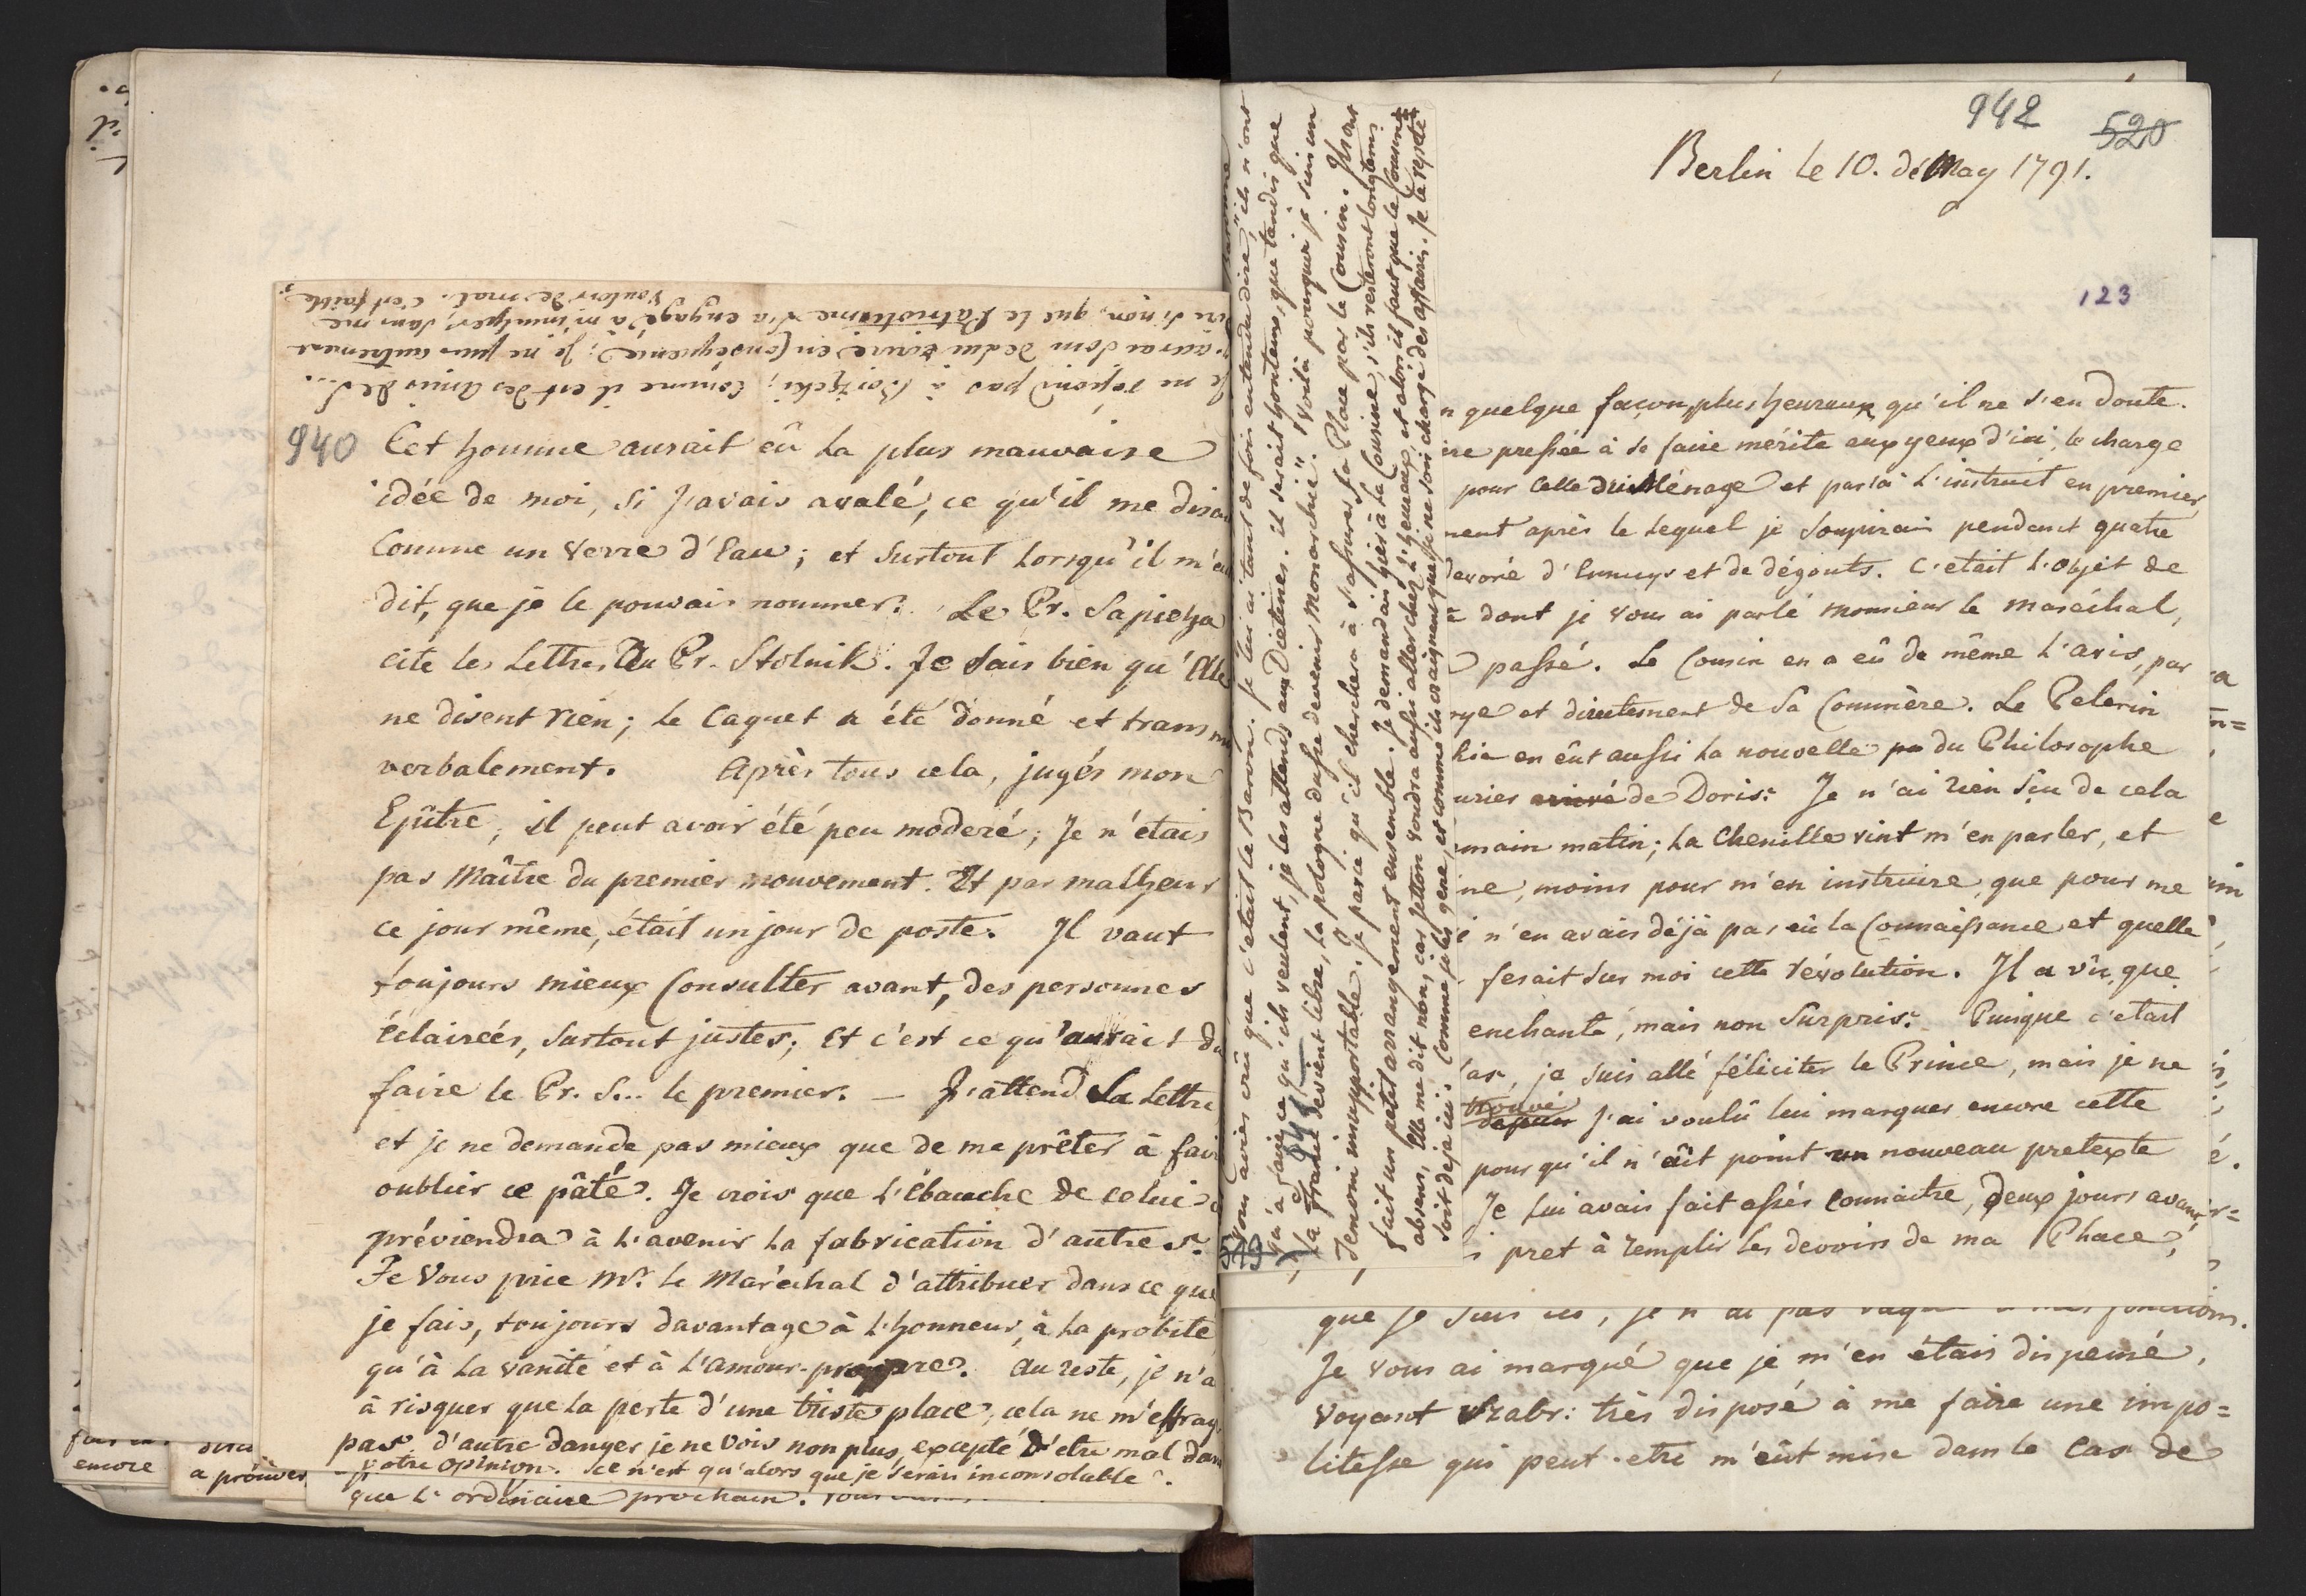 Je ne répond pas à Woiycki; comme il est des amis de S...
j'aurai soin de lui écrire en conséquence; Je ne puis autrement
dire sinon, que le Patriotisme l'a engagé à m'inculper, sans me
vouloir de mal. c'est faible
940
Cet homme aurait eû la plus mauvaise
idée de moi, si j'avais avalé, ce qu'il me disa
Comme un verre d'Eau; et surtout lorsqu'il m'eu
dit, que je le pouvais nommer. Le Pr. Sapieha
cite les Lettres du Pr. Stolnik. Je sais bien qu'Elle
ne disent rien; le Caquet a été donné et transm
verbalement. Après tous cela, jugés mon
Epître, il peut avoir été peu moderé; Je n'étais
pas Maître du premier mouvement. Et par malheur
ce jour même, était un jour de poste. Il vaut
toujours mieux Consulter avant, des personnes
éclairées, surtout justes; Et c'est ce qu'aurait du
faire le Pr. S... le premier. — J'attend Sa Lettre
et je ne demande pas mieux que de me prêter à fair
oublier ce pâté. Je crois que l'Ebauche de celui c
préviendra à l'avenir la fabrication d'autres.
Je Vous prie Mr. le Maréchal d'attribuer dans ce que
je fais, toujours davantage à l'honneur, à la probité
qu'à la vanité et à l'amour-propre. Au reste, je n'a
à risquer que la perte d'une triste place, cela ne m'effray
pas. d'autre danger je ne vois non plus, excepté d'etre mal dans
votre opinion. Ce n'est qu'alors que je serais inconsolable.
que l'ordinaire prochain.
encore
a prouver
vous aviés crû que c'etait le Baron. Je lui ai tant de fois entendu dire, "ils n'ont
qu'à faire ce qu'ils veulent, je les attends aux Dietines. il serait honteux, que tandis que
la France devient libre, la Pologne dusse devenir Monarchie." Voilà pourquoi je suis un
Temoin insupportable. Je parie qu'il cherchera à s'assurer sa Place par le Cousin. Ils ont
fait un petit arrangement ensemble. Je demandais hier à la Cousine, s'ils resteront longtems
absens, Elle me dit non, car jetton voudra aussi aller chez l'heureux, et alors il faut que le Commis
soit deja ici. Comme je les gene, et comme ils craignent que je ne sois chargé des affaires. Je le repete
941
519
942
520
Berlin le 10. de May 1791.
123
n quelque façon plus heureux qu'il ne s'en doute.
ire pressée à se faire mérite aux yeux d'ici, le charge
pour Celle du Ménage et par là l'instruit en premier
ment après le lequel je soupirais pendant quatre
devoré d'Ennuys et de dégouts. C'etait l'objet de
dont je vous ai parlé Monsieur le Maréchal,
passé. Le Cousin en a eû de même l'avis, par
rye et directement de Sa Commère. Le Pelerin
hie en eût aussi la nouvelle du Philosophe
urier de Doris. Je n'ai rien sçu de cela
main matin; La Chenille vint m'en parler, et
ine, moins pour m'en instruire, que pour me
n'en avais déjà pas eû la Connaissance et quelle
ferait sur moi cette révolution. Il a vû que
enchanté, mais non surpris. Puisque c'etait
las, je suis allé féliciter le Prince, mais je ne
trouvé
depuis j'ai voulû lui marquer encore cette
pour qu'il n'aût point un nouveau pretexte
Je lui avais fait assés connaitre, deux jours avant,
pret à remplir les devoirs de ma Place,
que je suis ici, je n'ai pas fonctions.
Je vous ai marqué que je m'en étais dispensé,
voyant Hrabr: très disposé à me faire une impo=
litesse qui peut-etre m'eût mise dans le Cas de